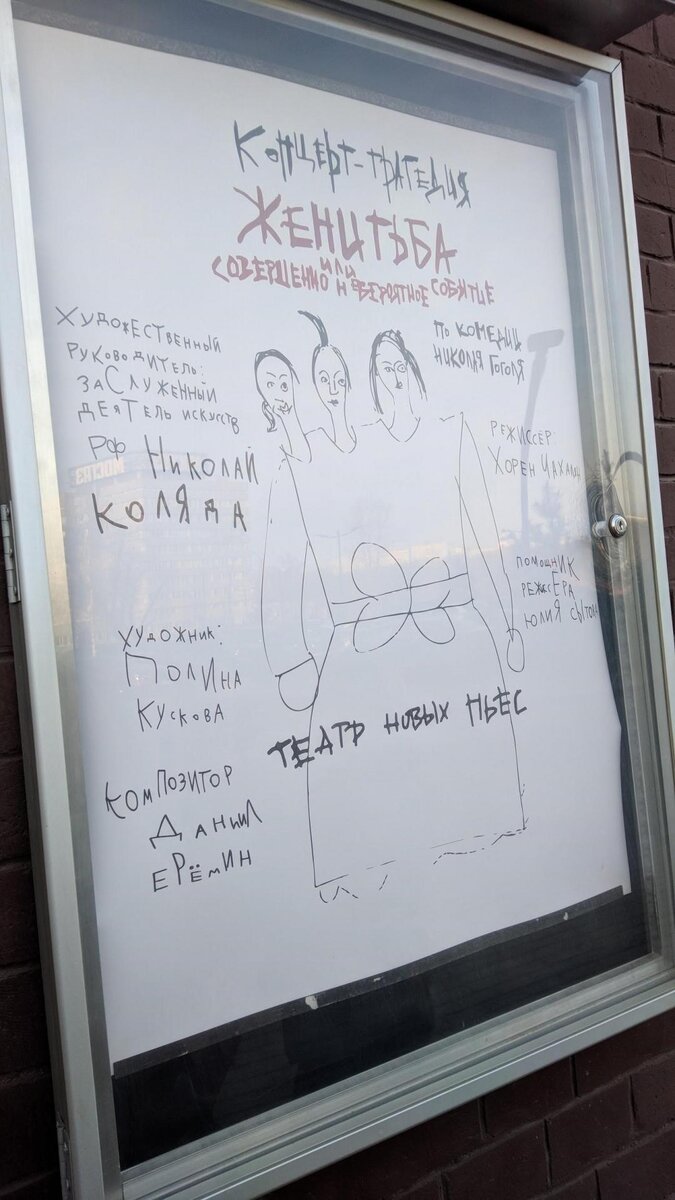 КОНЦЕРТ-ТРАГЕДИЯ
ЖЕНИТЬБА
ИЛИ
СОВЕРШЕННО НЕВЕРОЯТНОЕ СОБЫТИЕ
ПО КОМЕДИИ
НИКОЛАЯ ГОГОЛЯ
ХУДОЖЕСТВЕННЫЙ
РУКОВОДИТЕЛЬ:
ЗАСЛУЖЕННЫЙ
ДЕЯТЕЛЬ ИСКУССТВ
РФ НИКОЛАЙ
КОЛЯДА
РЕЖИССЁР:
ХОРЕН
ПОМОЩНИК
РЕЖИССЕРА
ЮЛИЯ
ХУДОЖНИК:
ПОЛИНА
КУСКОВА
ТЕАТР НОВЫХ ПЬЕС
КОМПОЗИТОР
ДАНИИЛ
ЕРЁМИН